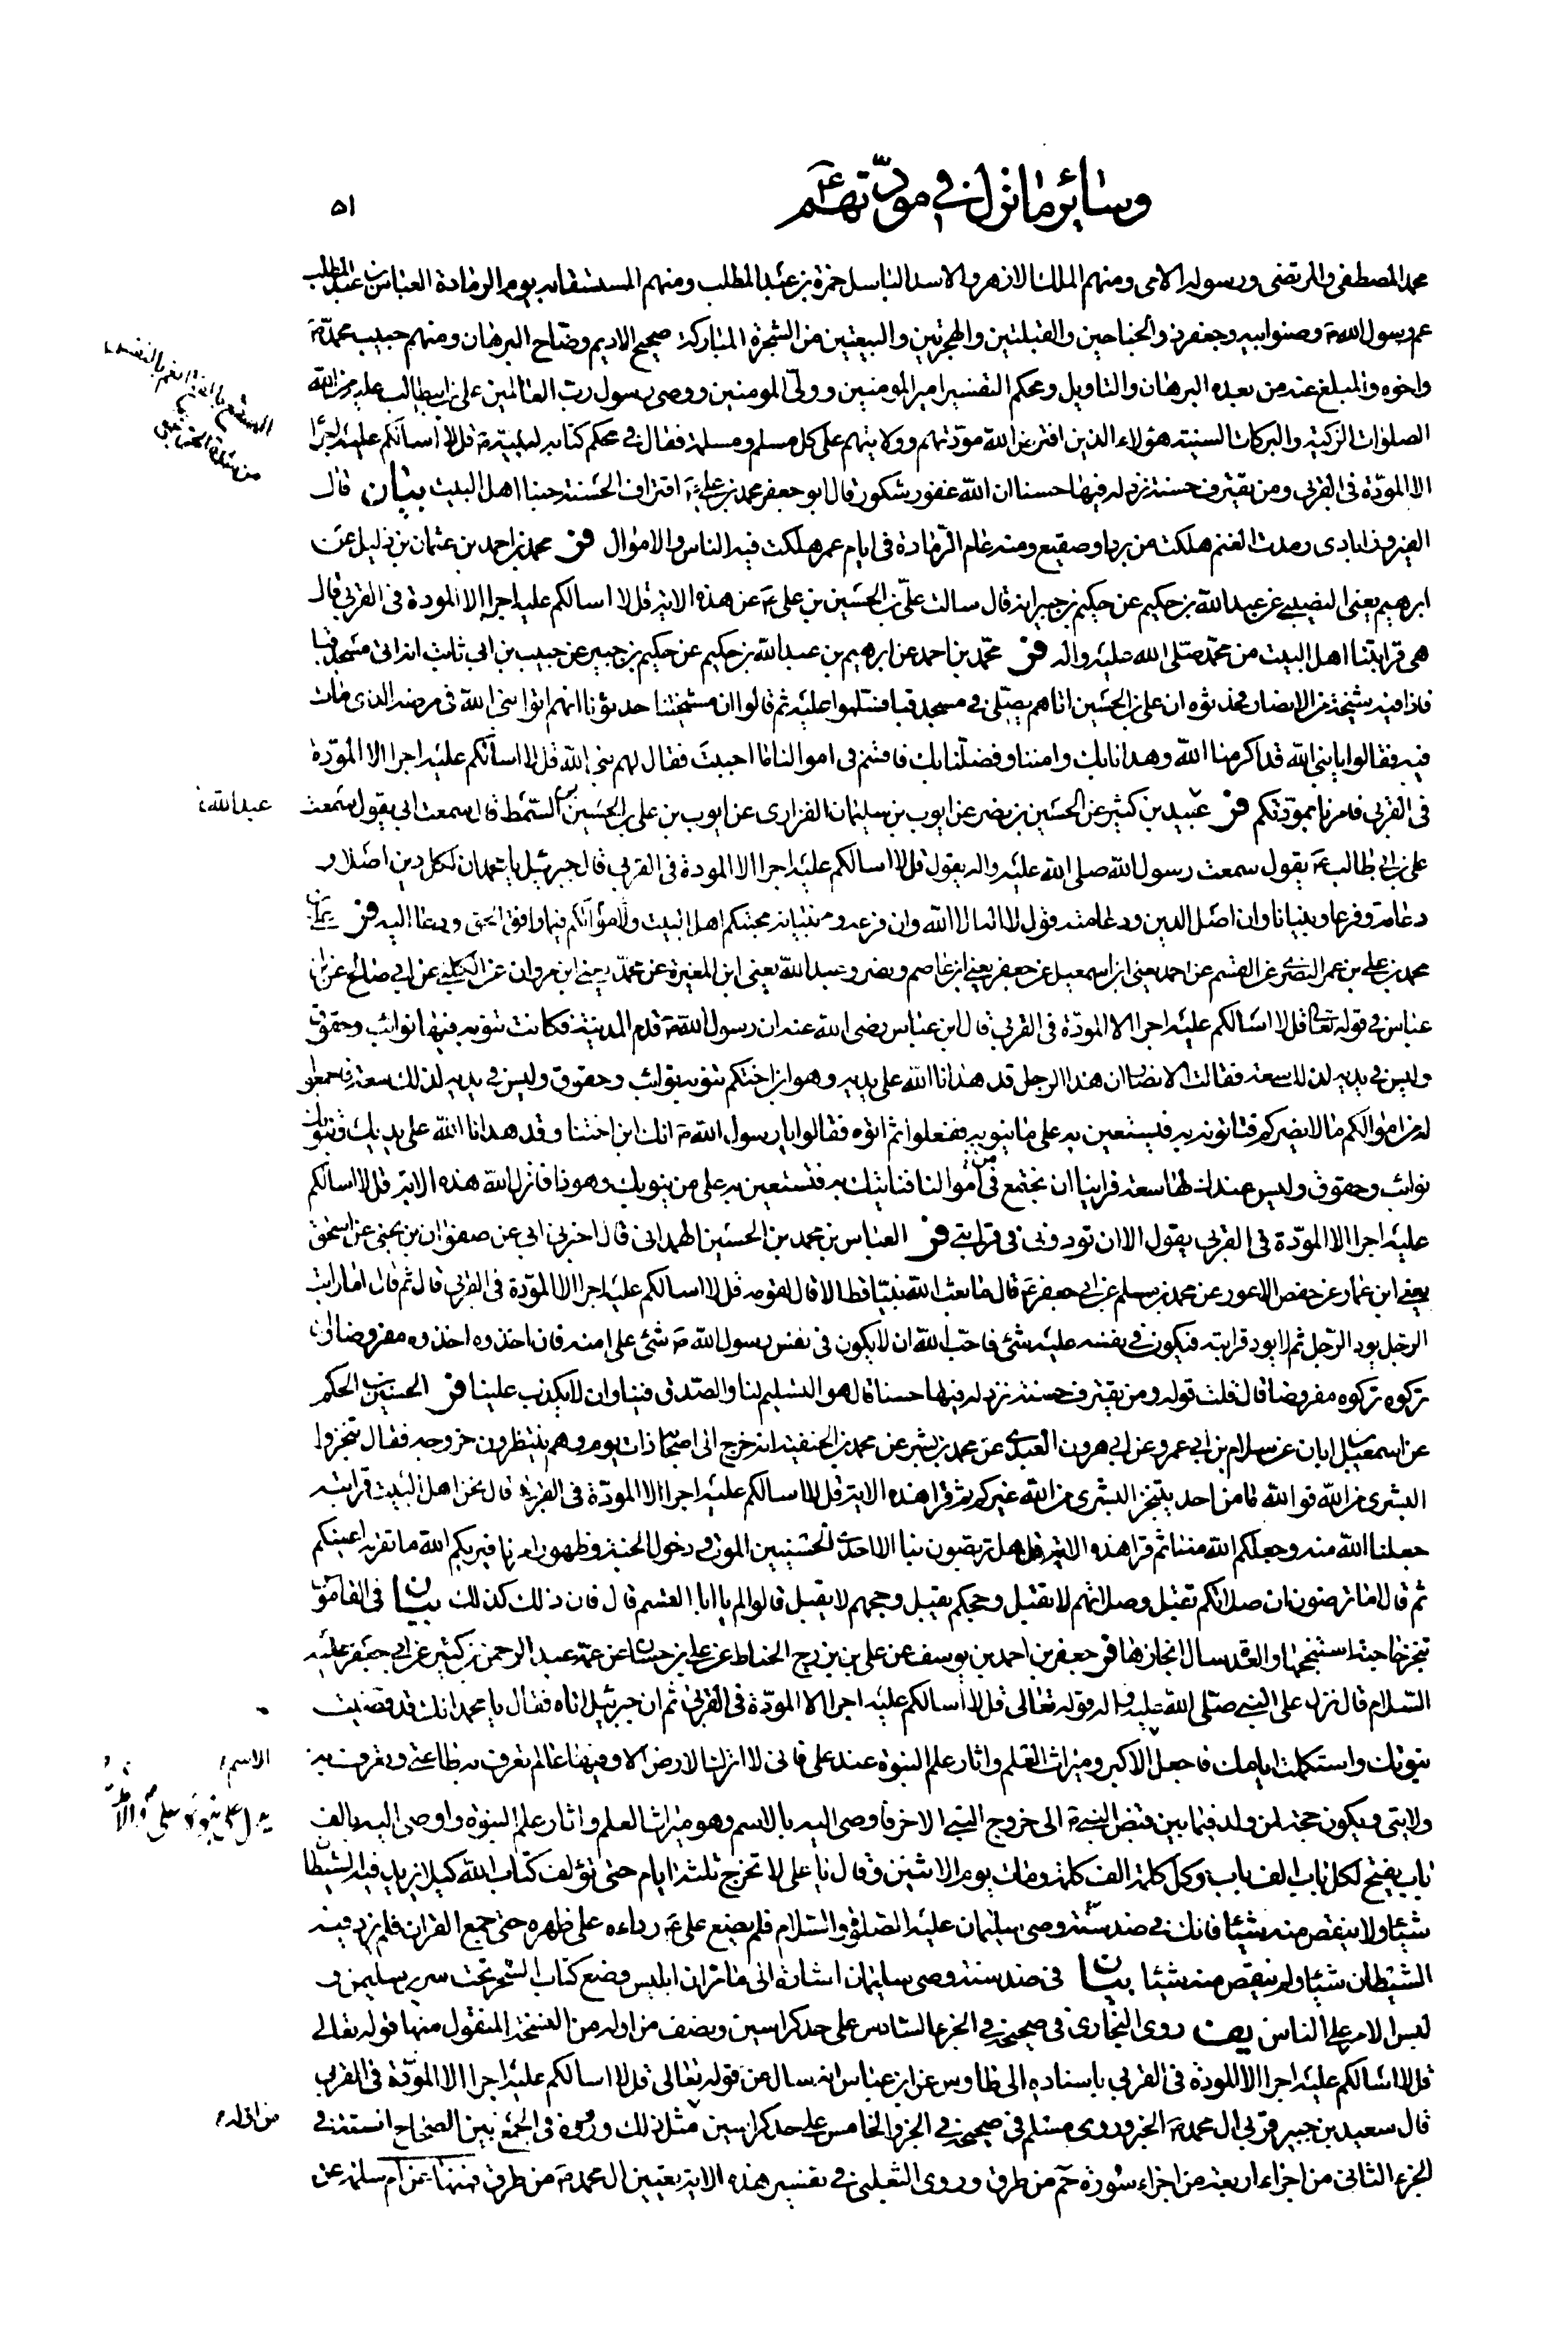 وسائر ما نزل في مودّتهم ع
٥١
محمد المصطفى والمرتضى ورسوله الامى ومنهم الملك الازهر والاسد الباسل حمزة بن عبد المطلب ومنهم المستسقا به يوم الرمادة العباس بن عبد المطلب
عم رسول الله ص وصنو ابيه وجعفر ذو الجناحين والقبلتين والهجرتين والبيعتين من الشجرة المباركة صحيح الاديم وضاح البرهان ومنهم حبيب محمد ص
واخوه والمبلغ عنه من بعده البرهان والتاويل ومحكم التفسير امير المومنين وولىّ المومنين ووصى رسول رب العالمين على بن ابيطالب عليه من الله
الصلوات الزكية والبركات السنية هؤلاء الذين افترض الله مودتهم وولايتهم على كل مسلم ومسلمة فقال في محكم كتابه لنبيه ص قل لا اسألكم عليه اجرا
الا المودّة فى القربى ومن يقترف حسنة نزد له فيها حسنا ان الله غفور شكور قال ابو جعفر محمد بن على ع اقتراف الحسنة حبنا اهل البيت بيان قال
الفيروزابادى رمدت الغنم هلكت من برد او صقيع ومنه عام الرّمادة فى ايام عمر هلكت فيه الناس والاموال فر محمد بن احمد بن عثمان بن ذليل عن
ابرهيم يعنى الصينى عن عبد الله بن حكيم عن حكيم بن جبير انه قال سالت علىّ بن الحسين بن على ع عن هذه الاية قل لا اسالكم عليه اجرا الا المودة فى القربى قال
هى قرابتنا اهل البيت من محمد صلّى الله عليه واله فر محمّد بن احمد عن ابرهيم بن عبد الله بن حكيم عن حكيم بن جبير عن حبيب بن ابى ثابت انه اتى مسجد قبا
فاذا فيه مشيخة من الانصار فحدثوه ان على بن الحسين اتاهم يصلّى في مسجد قبا فسلموا عليه ثم قالوا ان مشيختنا حدثونا انهم اتوا نبى الله فى مرضه الذى مات
فيه فقالوا يا نبى الله قد اكرمنا الله وهدانا بك وامنا وفضلنا بك فاقسم فى اموالنا ما احببت فقال لهم نبى الله قل لا اسألكم عليه اجرا الا المودّة
فى القربى فامرنا بمودتكم فر عبيد بن كثير عن الحسين بن نصر عن ايوب بن سليمان الفزارى عن ايوب بن على بن الحسين بن السّمط قال سمعت ابى يقول سمعت
عبد الله
على بن ابى طالب ع يقول سمعت رسول الله صلى الله عليه واله يقول قل لا اسالكم عليه اجرا الا المودة فى القربى قال جبرئيل يا محمد ان لكل دين اصلا و
دعامة وفرعا وبنيانا وان اصل الدين ودعامته قول لا اله الا الله وان فرعه وبنيانه محبتكم اهل البيت وموالاتكم فيما وافق الحق ودعا اليه فر
محمد بن على بن عمر البصرى عن القسم عن احمد يعنى ابن اسمعيل عن جعفر يعنى ابن عاصم ونصر وعبد الله يعنى ابن المغيرة عن محمّد يعنى ابن مروان عن الكلبى عن ابى صالح عن ابن
عباس في قوله تعالى قل لا اسالكم عليه اجرا الا المودّة فى القربى قال ابن عباس رضى الله عنه ان رسول الله ص قدم المدينة فكانت تنوبه فيها نوائب وحقوق
وليس في يديه لذلك سعة فقالت الانصار ان هذا الرجل قد هدانا الله على يديه وهو ابن اختكم تنوبه نوائب وحقوق وليس في يديه لذلك سعة فاجمعوا
له من اموالكم ما لا يضركم فتاتونه به فيستعين به على ما ينوبه ففعلوا ثم اتوه فقالوا يا رسول الله ص انك ابن اختنا وقد هدانا الله على يديك وتنوبك
نوائب وحقوق وليس عندك لها سعة فراينا ان نجتمع من اموالنا فناتيك به فتستعين به على من ينوبك وهو ذا فانزل الله هذه الاية قل لا اسالكم
عليه اجرا الا المودّة فى القربى يقول الا ان تودونى فى قرابتى فر العباس بن محمد بن الحسين الهمدانى قال اخبرنى ابى عن صفوان بن يحيى عن اسحق
يعنى ابن عمار عن حفص الاعور عن محمد بن مسلم عن ابى جعفر ع قال ما بعث الله نبيّا قط الا قال لقومه قل لا اسالكم عليه اجرا الا المودّة فى القربى قال ثم قال اما رايت
الرجل يود الرّجل ثم لا يود قرابته فيكون في نفسه عليه شئ فاحبّ الله ان لا يكون فى نفس رسول الله ص شئ على امته فان اخذوه اخذوه مفروضا وان
تركوه تركوه مفروضا قال قلت قوله ومن يقترف حسنة نزد له فيها حسنا قال هو التسليم لنا والصّدق فينا وان لا يكذب علينا فر الحسين بن الحكم
عن اسمعيل بن ابان عن سلام بن ابى عمرو عن ابى هرون العبدى عن محمد بن بشر عن محمد بن الحنفية انه خرج الى اصحابه ذات يوم وهم ينتظرون خروجه فقال تنجزوا
البشرى من الله فو الله ما من احد يتنجز البشرى من الله غيركم ثم قرا هذه الاية قل لا اسالكم عليه اجرا الا المودّة فى القربى قال نحن اهل البيت قرابته
جعلنا الله منه وجعلكم الله منا ثم قرا هذه الاية قل هل تربصون بنا الا احدى الحسنيين الموت في دخول الجنة وظهور امرنا فيريكم الله ما تقر به اعينكم
ثم قال اما ترضون ان صلاتكم تقبل وصلاتهم لا تقبل وحجكم يقبل وحجهم لا يقبل قالوا لم يا ابا القسم قال فان ذلك كذلك بيان فى القاموس
تنجز حاجته استنجحها والعدة سال انجازها فر جعفر بن احمد بن يوسف عن على بن بزرج الحناط عن على بن حسان عن عمه عبد الرحمن بن كثير عن ابى جعفر عليه
السّلام قال نزل على النبى صلّى الله عليه واله قوله تعالى قل لا اسالكم عليه اجرا الا المودّة فى القربى ثم ان جبرئيل اتاه فقال يا محمد انك قد قضيت
نبوتك واستكملت ايامك فاجعل الاكبر وميراث العلم واثار علم النبوة عند على فانى لا اترك الارض الا وفيها عالم تعرف به طاعتى وتعرف به
الاسم
ولايتى ويكون حجة لمن ولد فيما بين قبض النبى ص الى خروج النبى الاخر فاوصى اليه بالاسم وهو ميراث العلم واثار علم النبوة واوصى اليه بالف
باب يفتح لكل باب الف باب وكل كلمة الف كلمة ومات يوم الاثنين وقال يا على لا تخرج ثلثة ايام حتى تؤلف كتاب الله كيلا يزيد فيه الشيطان
شيئا ولا ينقص منه شيئا فانك في ضد سنة وصى سليمان عليه الصلوة والسّلام فلم يضع على ع رداءه على ظهره حتى جمع القران فلم يزد فيه
الشيطان شيئا ولم ينقص منه شيئا بيان فى ضد سنة وصى سليمان اشارة الى ما مر ان ابليس وضع كتاب السّحر تحت سرير سليمن و
لبس الامر على الناس يف روى البخارى فى صحيحه في الجزء السادس على حد كراسين ونصف من اوله من النسخة المنقول منها قوله تعالى
قل لا اسالكم عليه اجرا الا المودة فى القربى باسناده الى طاوس عن ابن عباس انه سال عن قوله تعالى قل لا اسالكم عليه اجرا الا المودّة فى القربى
قال سعيد بن جبير قربى ال محمد ص الخبر وروى مسلم فى صحيحه في الجزء الخامس على حد كراسين مثل ذلك ورووه فى الجمع بين الصحاح الستة في
من اوله
الجزء الثانى من اجزاء اربعة من اجزاء سورة حم من طرق وروى الثعلبى في تفسير هذه الاية تعيين ال محمد ص من طرق فمنها عن ام سلمة عن